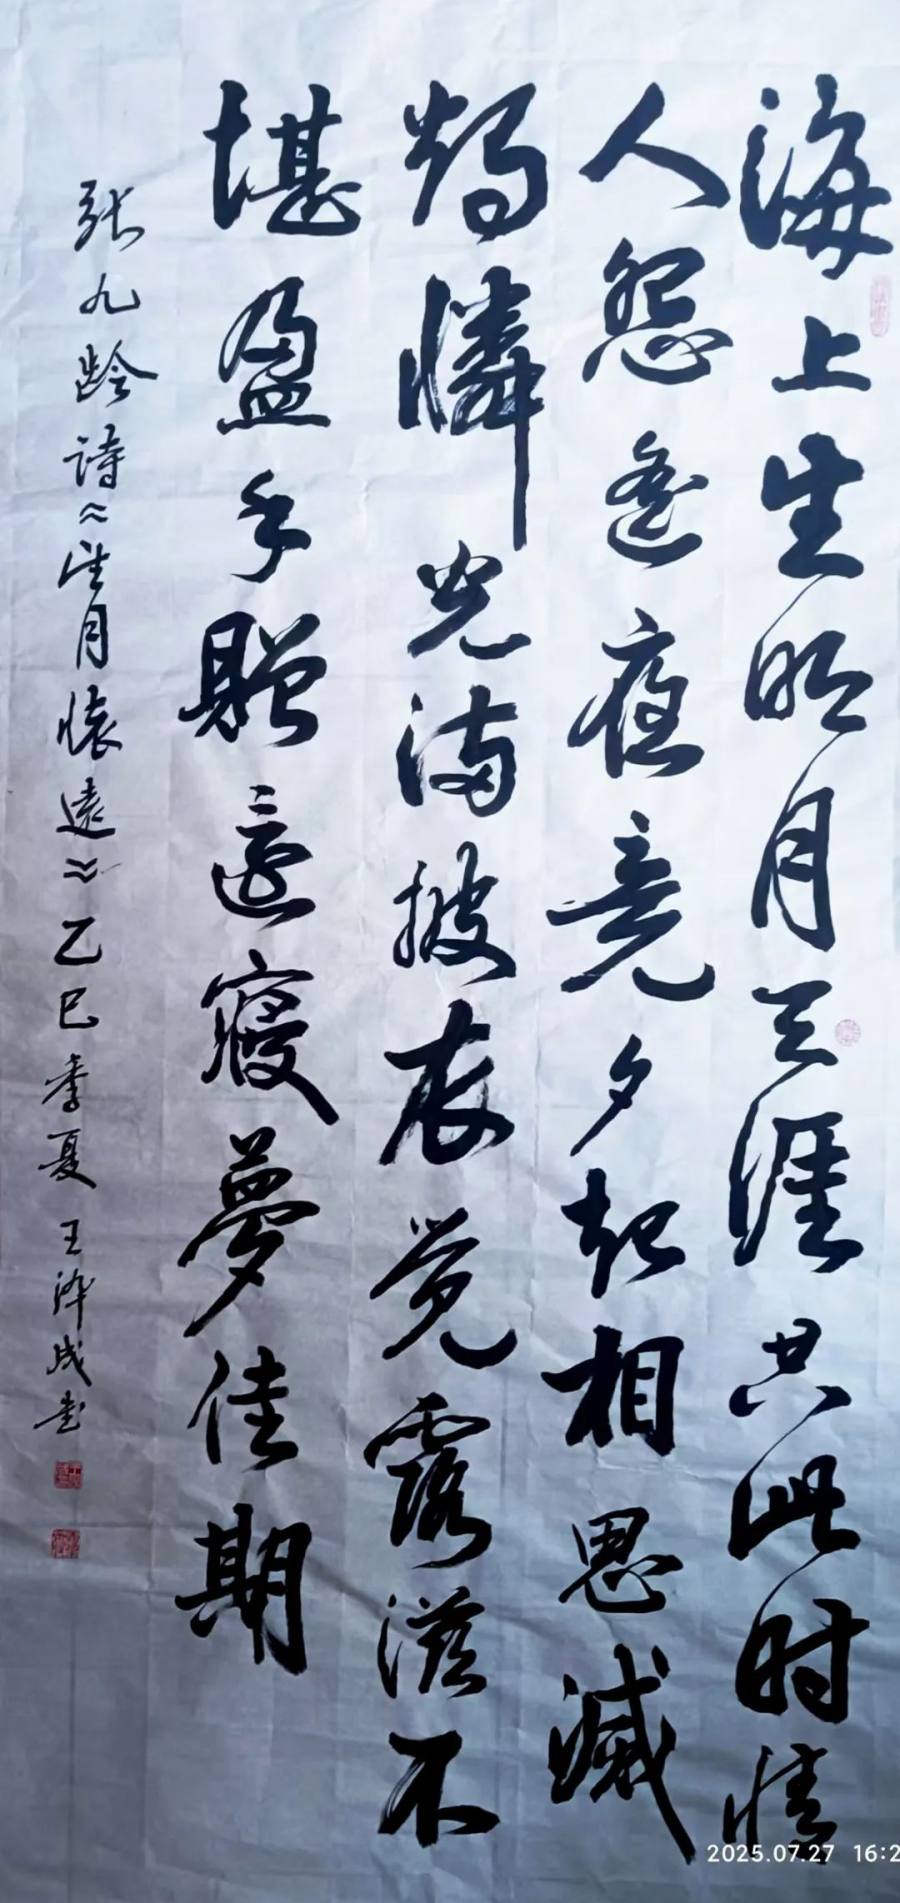 海上生明月天涯共此时情
人怨遥夜竟夕起相思滅
燭憐光满披衣觉露滋不
堪盈手贈還寝夢佳期
张九龄诗《望月懷遠》乙巳季夏 王 成书
2025.07.27 16:2